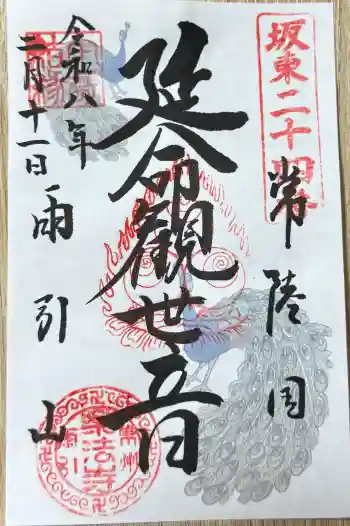 坂東二十四番
常陸国
延命觀世音
雨引山
令和八年
二月十一日
樂法寺